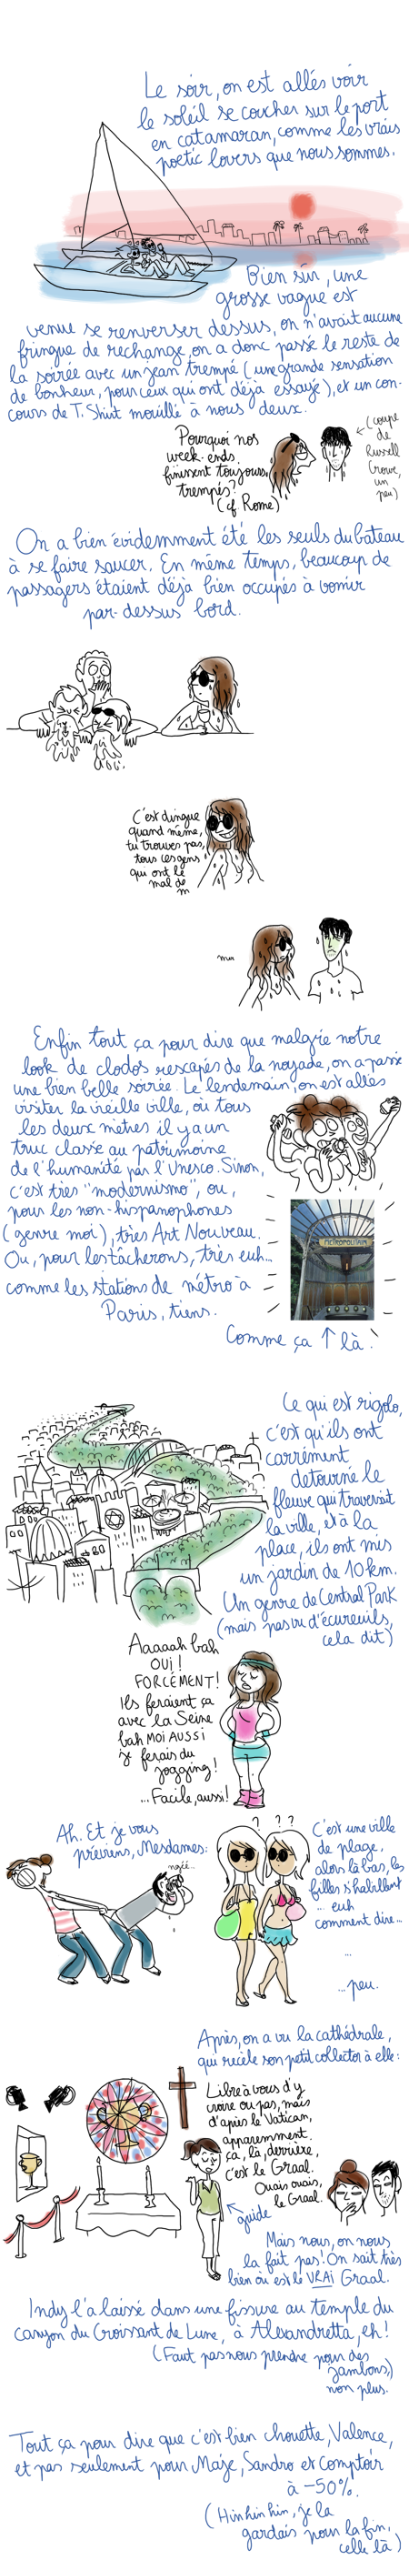 Le soir, on est allés voir
le soleil se coucher sur le port
en catamaran, comme les vrais
poetic lovers que nous sommes.
Bien sûr, une
grosse vague est
venue se renverser dessus, on n'avait aucune
fringue de rechange, on a donc passé le reste de
la soirée avec un jean trempé (une grande sensation
de bonheur, pour ceux qui ont déjà essayé), et un con-
cours de T. Shirt mouillé à nous deux.
Pourquoi nos
week-ends
finissent toujours
trempés?
(cf. Rome)
(coupe
de
Russell
Crowe,
un
peu)
On a bien évidemment été les seuls du bateau
à se faire saucer. En même temps, beaucoup de
passagers étaient déjà bien occupés à vomir
par-dessus bord.
C'est dingue
quand même,
tu trouves pas,
tous ces gens
qui ont le
mal de
m
Enfin tout ça pour dire que malgré notre
look de clodos rescapés de la noyade, on a passé
une bien belle soirée. Le lendemain, on est allés
visiter la vieille ville, où tous
les deux mètres il y a un
truc classé au patrimoine
de l'humanité par l'Unesco. Sinon,
c'est très "modernismo", ou,
pour les non-hispanophones
(genre moi), très Art Nouveau.
Ou, pour les tâcherons, très euh...
comme les stations de métro à
Paris, tiens.
METROPOLITAIN
Comme ça ↑ là.
Ce qui est rigolo,
c'est qu'ils ont
carrément
détourné le
fleuve qui traversait
la ville, et à la
place, ils ont mis
un jardin de 10 km.
Un genre de Central Park
(mais pas vu d'écureuils,
cela dit)
Aaaaah bah
OUI!
FORCÉMENT!
Ils feraient ça
avec la Seine
bah MOI AUSSI
je ferais du
jogging!
...Facile, aussi!
Ah. Et je vous
préviens, Mesdames:
? ??
C'est une ville
de plage,
alors là bas, les
filles s'habillent
... euh
comment dire...
...
... peu.
Après, on a vu la cathédrale,
qui recèle son petit collector à elle:
Libre à vous d'y
croire ou pas, mais
d'après le Vatican,
apparemment
ça, là, derrière,
c'est le Graal.
Ouais ouais,
le Graal.
guide
Mais nous, on nous
la fait pas! On sait très
bien où est le VRAI Graal.
Indy l'a laissé dans une fissure au temple du
canyon du Croissant de Lune, à Alexandretta, eh!
(Faut pas nous prendre pour des
jambons,)
non plus.
Tout ça pour dire que c'est bien chouette, Valence,
et pas seulement pour Maje, Sandro et Comptoir
à -50%.
(Hinhinhin, je la
gardais pour la fin,
celle là)